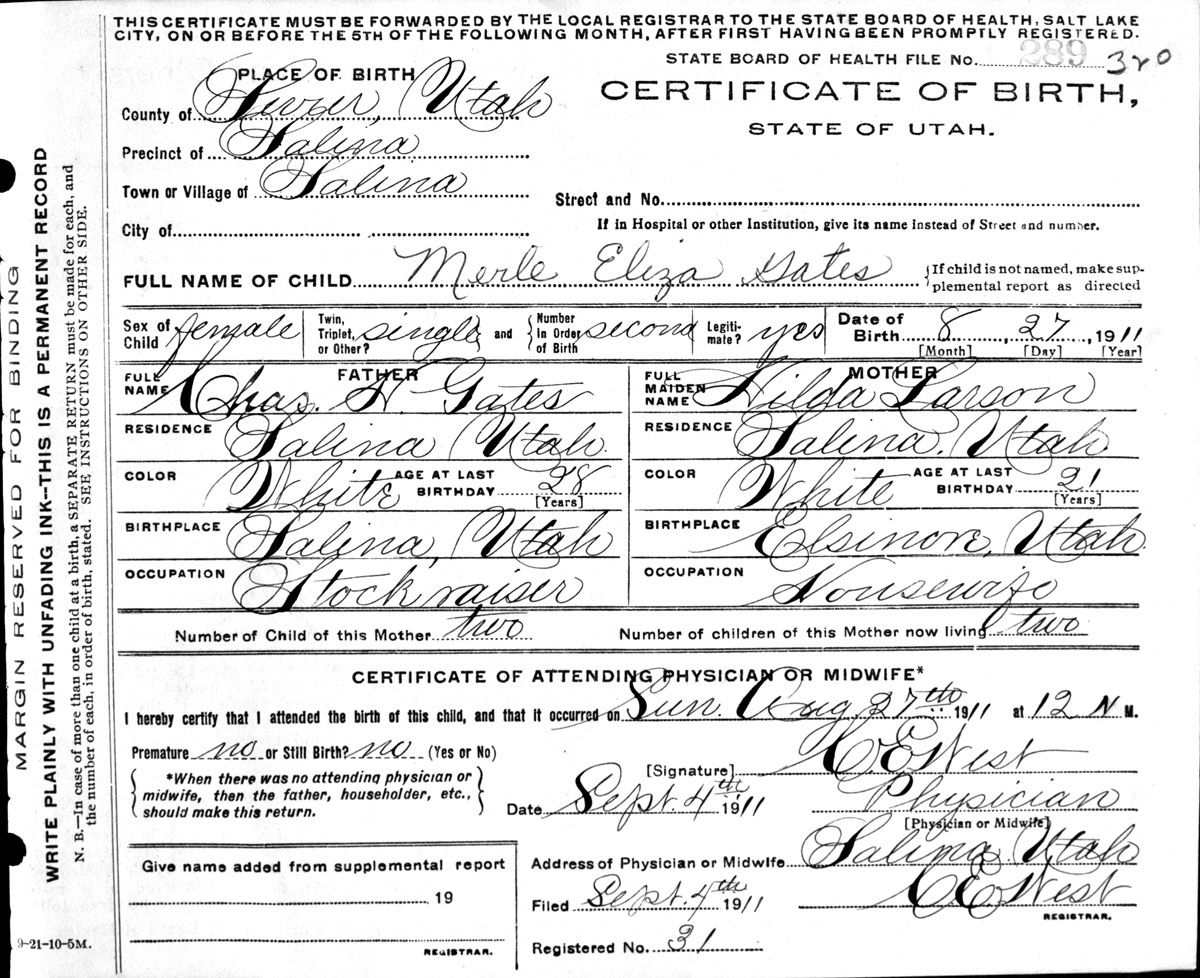 THIS CERTIFICATE MUST BE FORWARDED BY THE LOCAL REGISTRAR TO THE STATE BOARD OF HEALTH, SALT LAKE
CITY, ON OR BEFORE THE 5TH OF THE FOLLOWING MONTH, AFTER FIRST HAVING BEEN PROMPTLY REGISTERED.
STATE BOARD OF HEALTH FILE No. 289 320
PLACE OF BIRTH
CERTIFICATE OF BIRTH,
STATE OF UTAH.
County of Sevier, Utah
Precinct of Salina
Town or Village of Salina
Street and No.
City of
If in Hospital or other Institution, give its name instead of Street and number.
FULL NAME OF CHILD Merle Eliza Gates {If child is not named, make sup-
plemental report as directed
Sex of Child female Twin, Triplet, or Other? single and {Number In Order of Birth second Legiti-mate? yes Date of Birth 8, 27, 1911
[Month] [Day] [Year]
FATHER MOTHER
FULL NAME Chas. H. Gates FULL MAIDEN NAME Hilda Larson
RESIDENCE Salina, Utah. RESIDENCE Salina, Utah
COLOR White AGE AT LAST BIRTHDAY 28 [Years] COLOR White AGE AT LAST BIRTHDAY 21 [Years]
BIRTHPLACE Salina, Utah BIRTHPLACE Elsinore, Utah.
OCCUPATION Stockraiser OCCUPATION Housewife
Number of Child of this Mother two Number of children of this Mother now living two
CERTIFICATE OF ATTENDING PHYSICIAN OR MIDWIFE*
I hereby certify that I attended the birth of this child, and that it occurred on Sun. Aug. 27th 1911 at 12 N M.
Premature no or Still Birth? no (Yes or No)
[Signature] C.E. West
{ *When there was no attending physician or
midwife, then the father, householder, etc.,
should make this return. }
Date Sept. 4th 1911 Physician
[Physician or Midwife]
Give name added from supplemental report
19
REGISTRAR.
Address of Physician or Midwife Salina, Utah
Filed Sept. 4th 1911 C.E. West
REGISTRAR.
Registered No. 31
9-21-10-5M.
MARGIN RESERVED FOR BINDING
WRITE PLAINLY WITH UNFADING INK—THIS IS A PERMANENT RECORD
N. B.—In case of more than one child at a birth, a SEPARATE RETURN must be made for each, and
the number of each, in order of birth, stated. SEE INSTRUCTIONS ON OTHER SIDE.